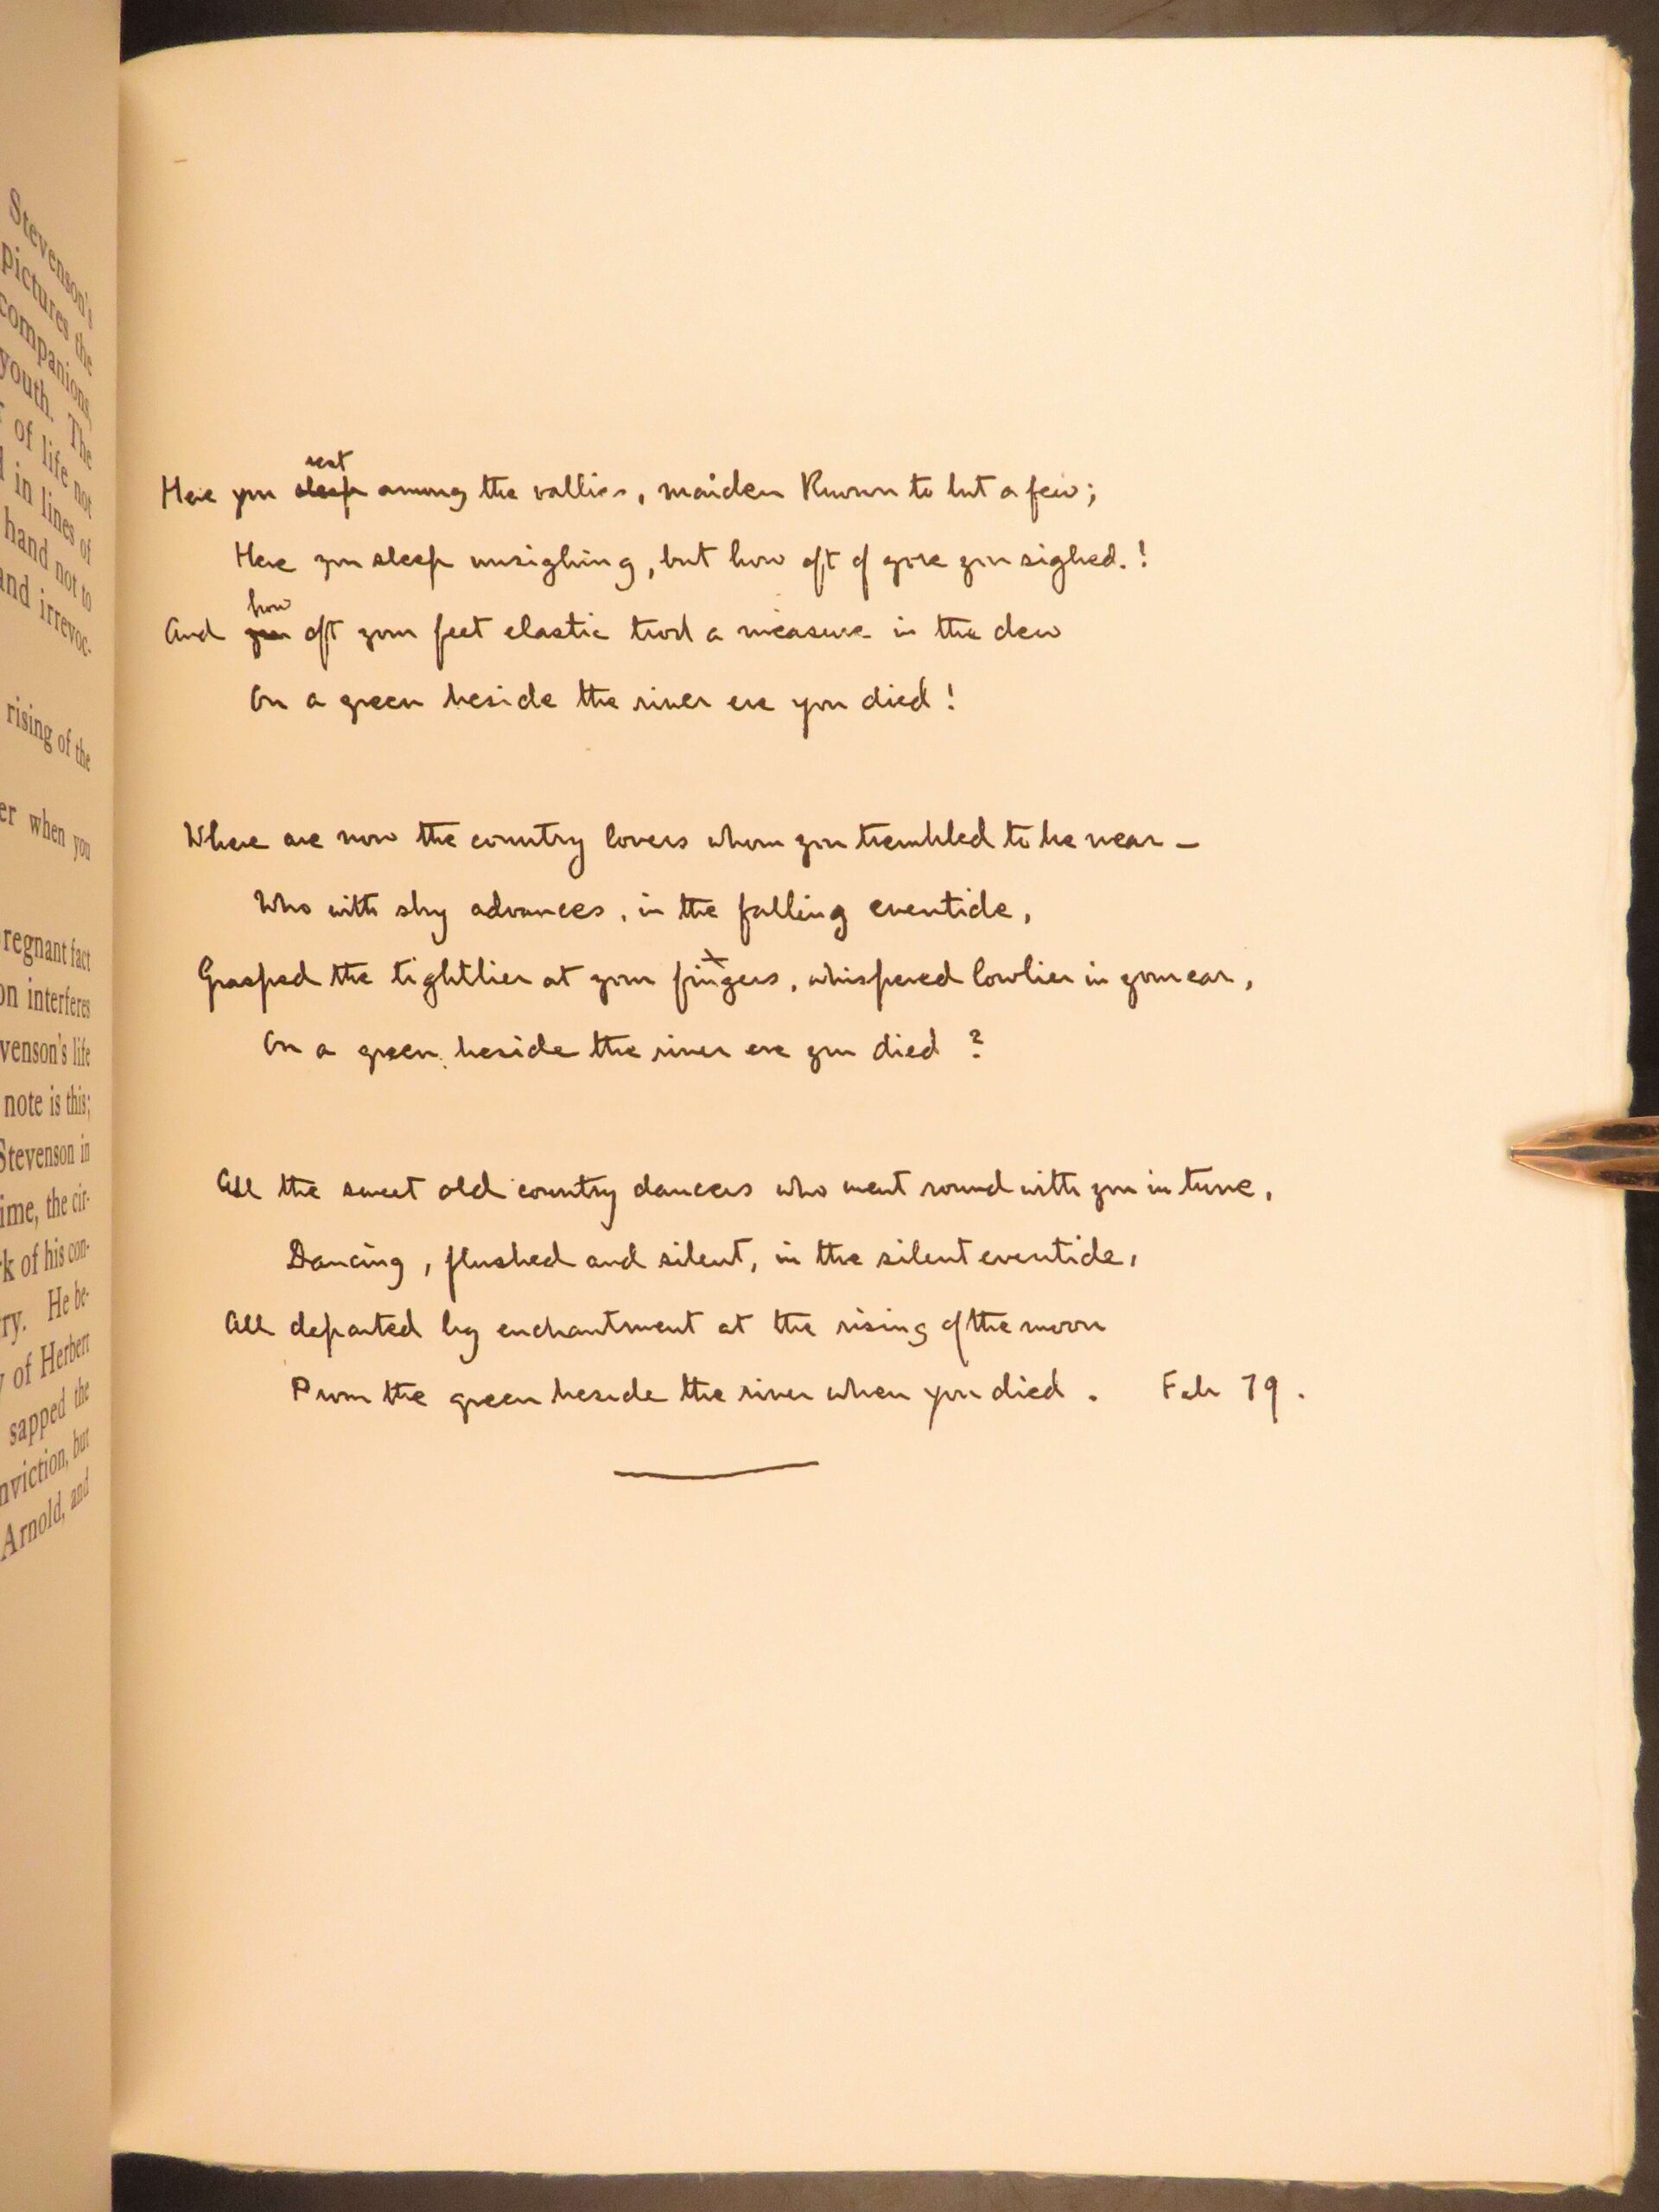 Stevenson's
pictures the
companions,
youth. The
of life not
in lines of
hand not to
and irrevoc-
rising of the
er when you
regnant fact
on interferes
venson's life
note is this;
Stevenson in
ime, the cir-
k of his con-
ry. He be-
of Herbert
sapped the
nviction, but
Arnold, and
rest
Here you sleep among the vallies, maiden known to but a few;
Here you sleep unsighing, but how oft of yore you sighed.!
how
And you oft your feet elastic trod a measure in the dew
On a green beside the river ere you died!
Where are now the country lovers whom you trembled to be near –
Who with shy advances, in the falling eventide,
Grasped the tightlier at your fingers, whispered lowlier in your ear,
On a green beside the river ere you died ?
All the sweet old country dancers who went round with you in tune,
Dancing, flushed and silent, in the silent eventide,
All departed by enchantment at the rising of the moon
From the green beside the river when you died. Feb 79.